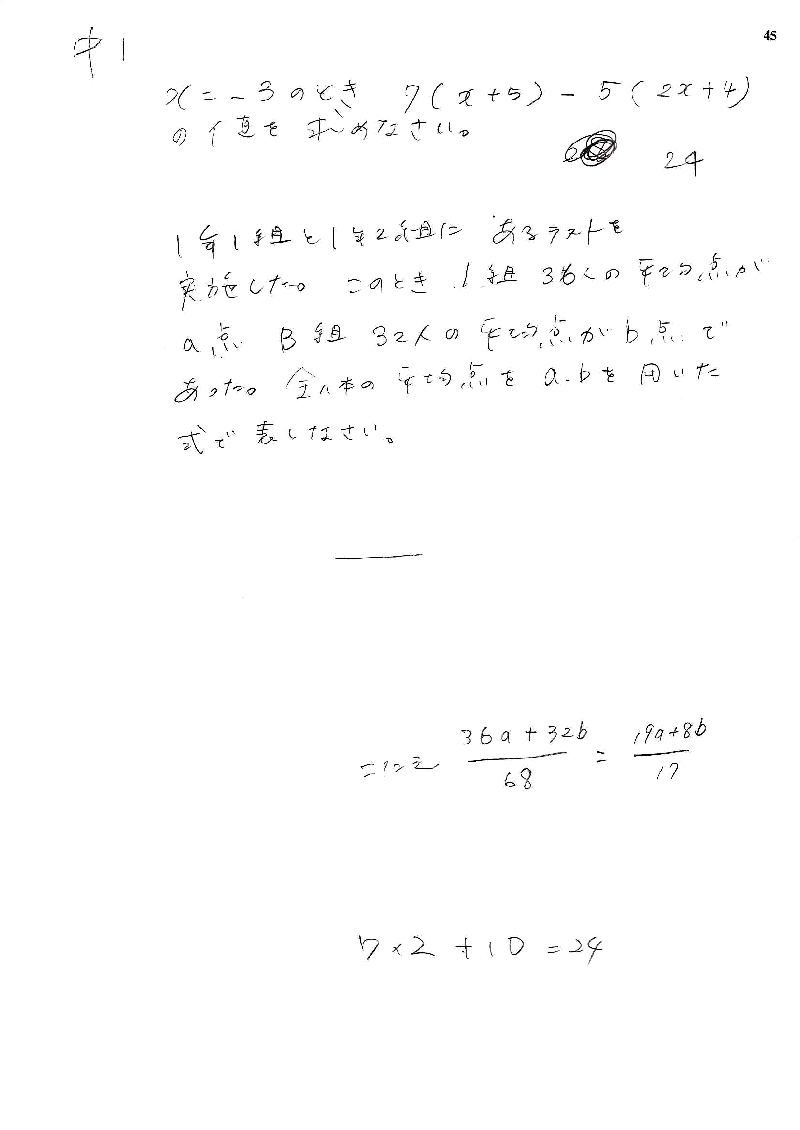 45
中1
x=-3のとき 7(x+5)-5(2x+4)
の値を求めなさい。
24
1年1組と1年2組に あるテストを
実施した。このとき 1組 36人の平均点が
a点 B組 32人の平均点がb点で
あった。全体の平均点をa.bを用いた
式で表しなさい。
36a+32b/68 = 19a+8b/17
7×2+10=24